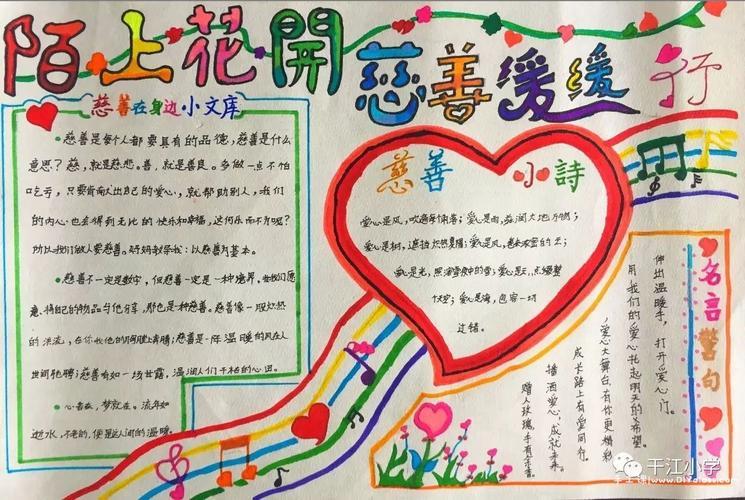 陌上花開 慈善缓缓行
慈善在身边小文库
慈善是每个人都要具有的品德,慈善是什么
意思?慈,就是慈悲。善,就是善良。多做一点不怕
吃亏,只要肯献出自己的爱心,就帮助别人,我们
的内心也会得到无比的快乐和幸福,这何乐而不为呢?
所以我们做人要慈善。妈妈教导我:以慈善为基本。
慈善不一定是数字,但慈善一定是一种境界。
意,将自己的物品与他分享,那也是一种慈善。慈善像一股炽热
的洪流,在你我他的胸膛上奔腾;慈善是一阵温暖的风在人
世间驰骋;慈善有如一场甘露,滋润人们干枯的心田。
心若在,梦就在。流年如
逝水,不老的,便是这人间的温暖。
慈善小詩
爱心是风,吹遍每个角落;爱心是雨,滋润大地万物;
爱心是树,遮挡炎热夏阳;爱心是风,
爱心是光,照
爱心是云,点缀整个
天空;爱心是海,包容一切
过错。
名言警句
伸出温暖手,打开爱心门。
用我们的爱心托起明天的希望。
爱心大舞台有你更精彩
成长路上有爱同行。
播洒爱心,成就未来。
赠人玫瑰,手有余香。
干江小学